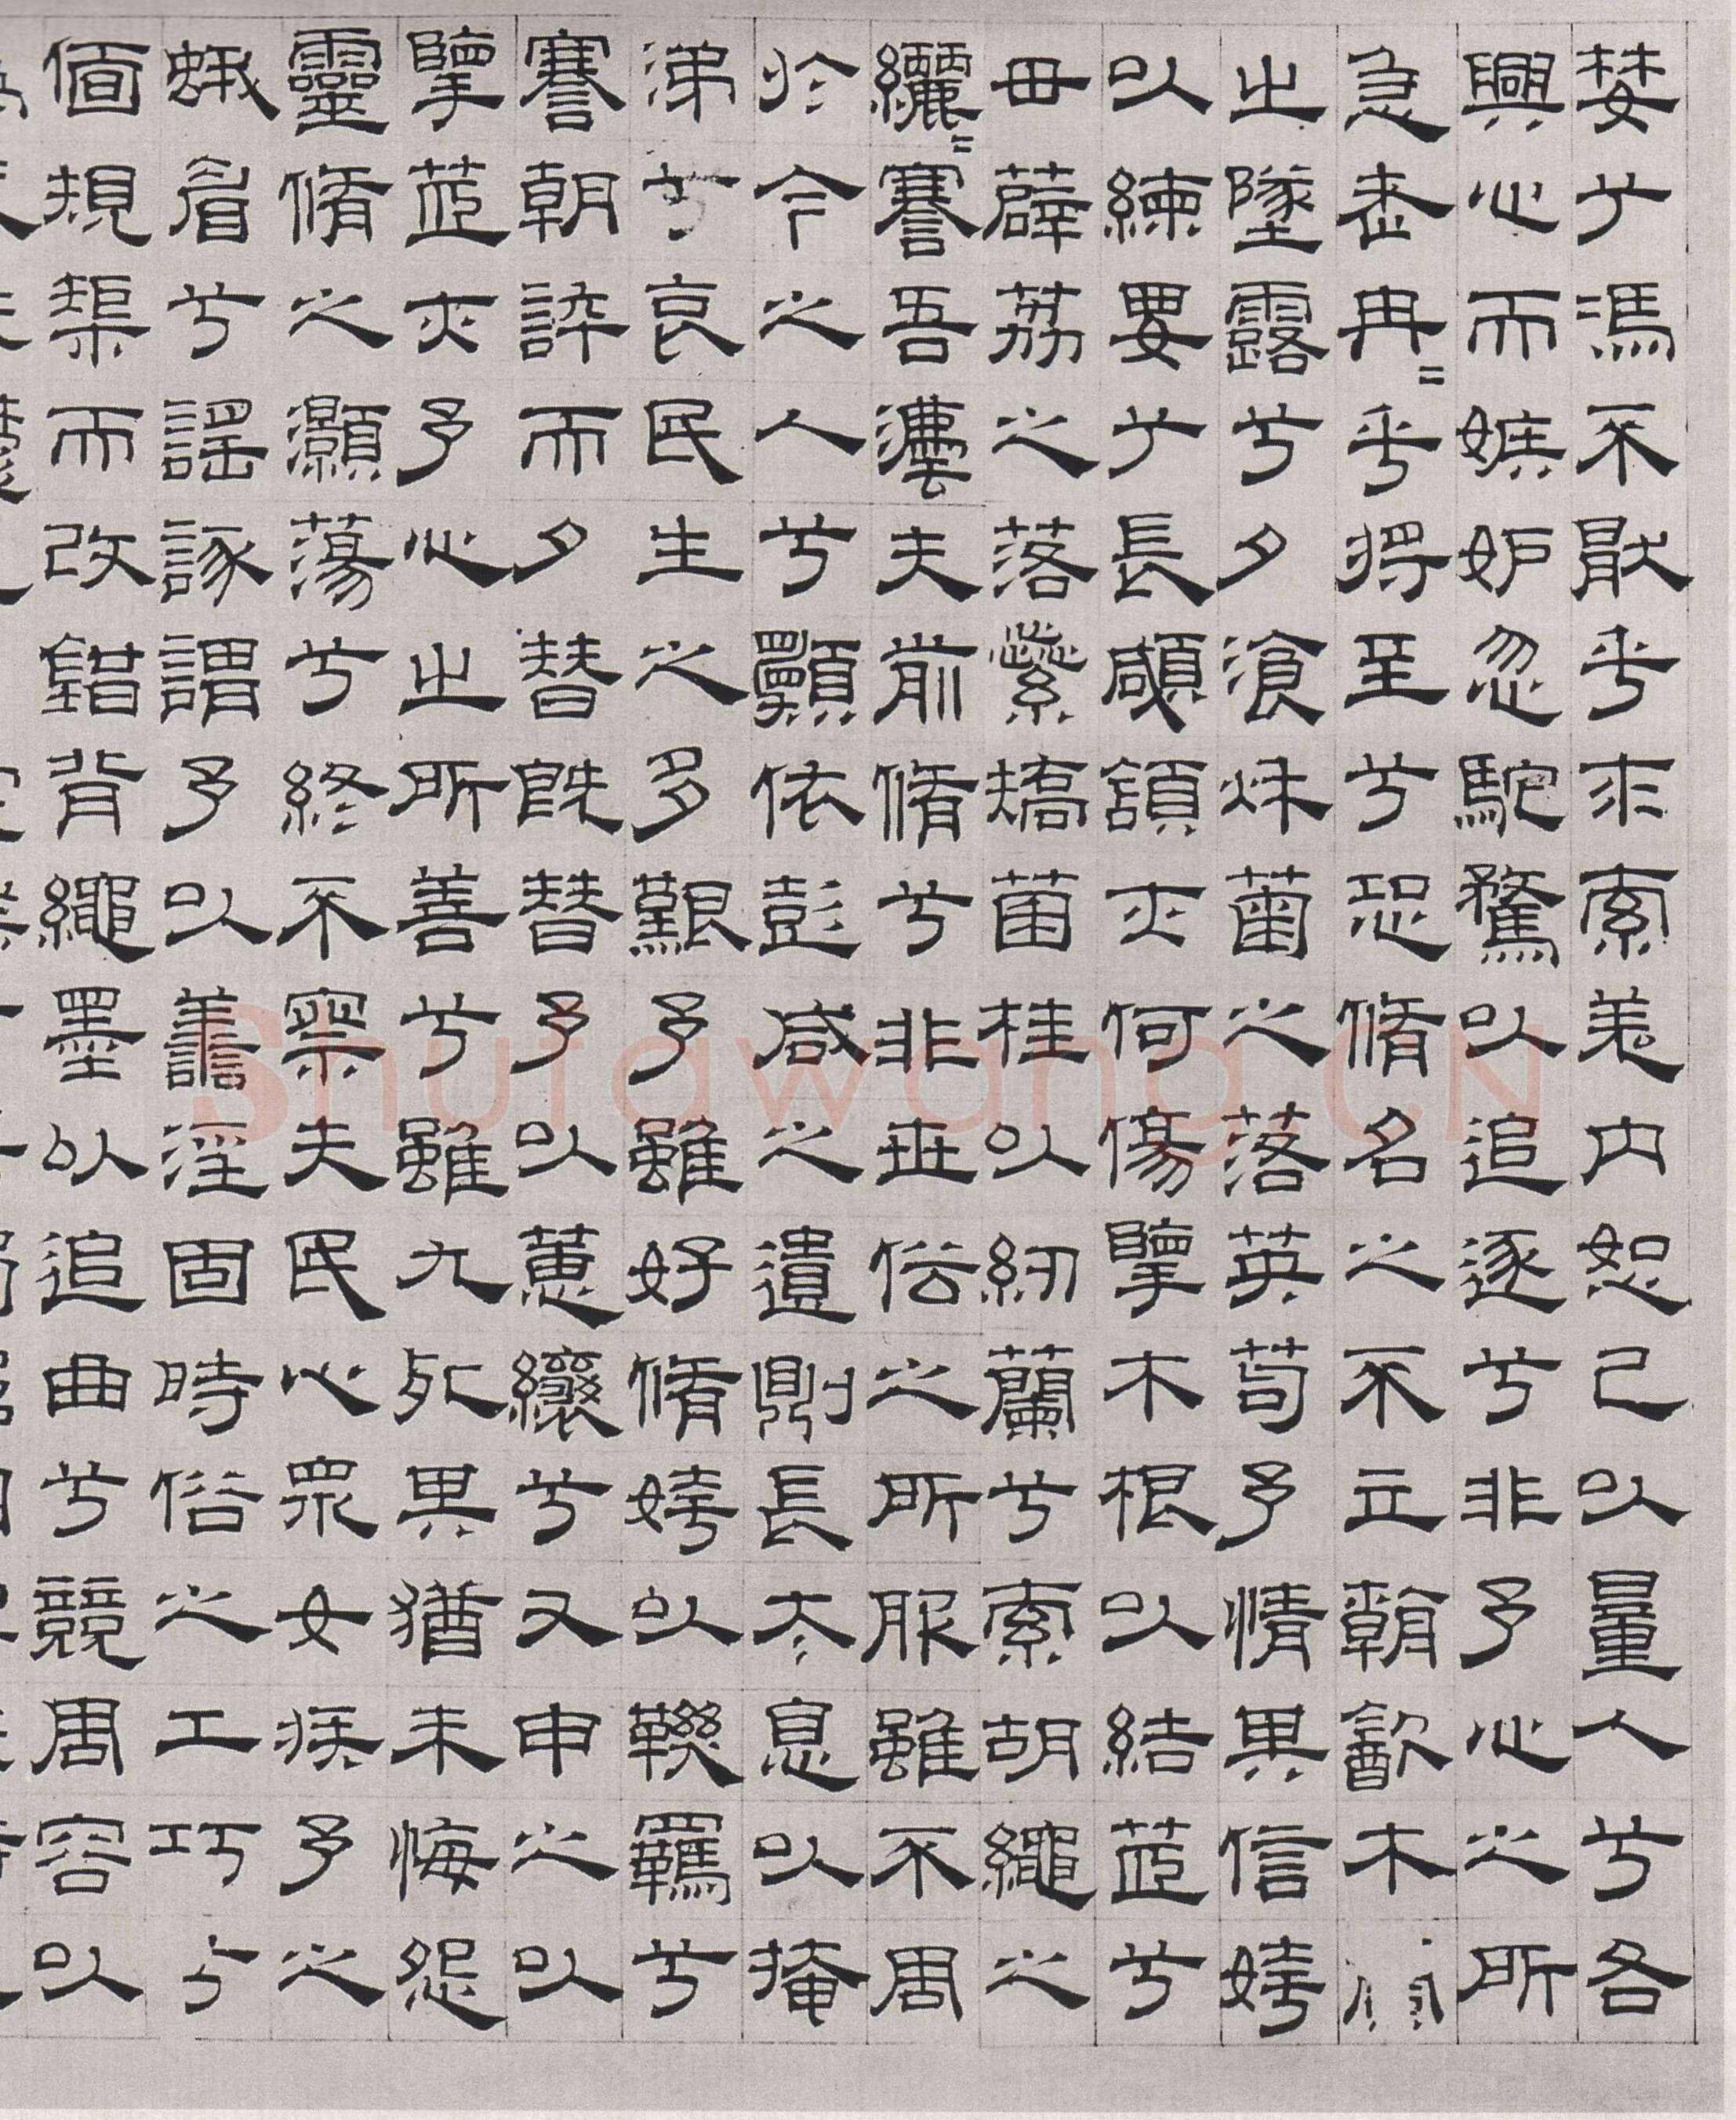 婪兮馮不猒乎求索羌内恕己以量人兮各
興心而嫉妒忽馳騖以追逐兮非予心之所
急老冉=乎將至兮恐脩名之不立朝飲木
之墜露兮夕湌秋菊之落英苟予情其信姱
以練要兮長顑頷亦何傷擥木根以結茝兮
毌薜荔之落蘂矯菌桂以紉蘭兮索胡繩之
纚=謇吾灋夫前脩兮非世俗之所服雖不周
於今之人兮顠依彭咸之遺則長太息以掩
涕兮哀民生之多艱予雖好脩姱以鞿羈兮
謇朝誶而夕替既替予以蕙纕兮又申之以
擥茝亦予心之所善兮雖九死其猶未悔怨
靈脩之灝蕩兮終不察夫民心衆女疾予之
蛾眉兮謠諑謂予以善淫固時俗之工巧兮
偭規榘而改錯背繩墨以追曲兮競周容以
Shufawang.CN